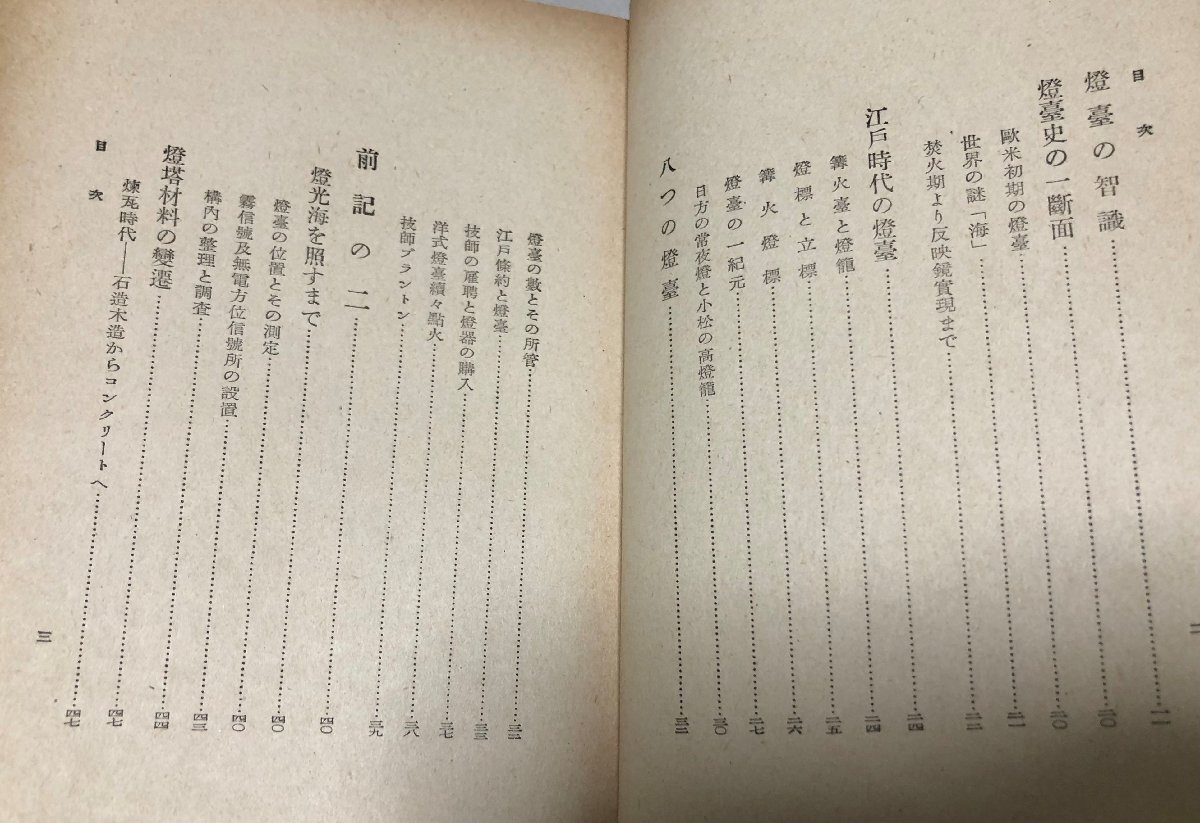 目次
燈臺の智識……一一
燈臺史の一斷面……二〇
歐米初期の燈臺……二〇
世界の謎「海」……二一
焚火期より反映鏡實現まで……二二
江戸時代の燈臺……二四
篝火臺と燈籠……二四
燈標と立標……二五
篝火燈標……二六
燈臺の一紀元……二七
日方の常夜燈と小松の高燈籠……三〇
八つの燈臺……三二
二
燈臺の數とその所管……三二
江戸條約と燈臺……三三
技師の雇聘と燈器の購入……三七
洋式燈臺續々點火……三八
技師ブラントン……三九
前記の二……四〇
燈光海を照すまで……四〇
燈臺の位置とその測定……四〇
霧信號及無電方位信號所の設置……四三
構內の整理と調査……四四
燈塔材料の變遷……四七
煉瓦時代――石造木造からコンクリートへ……四七
目次
三